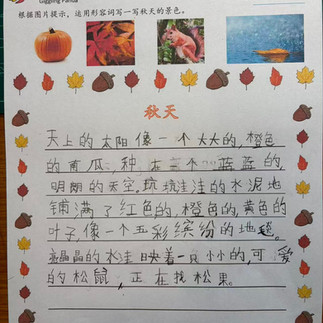 Giggling Panda
根据图片提示，运用形容词写一写秋天的景色。
秋天
天上的太阳像一个大大的，橙色
的南瓜，种在一个蓝蓝的，
明朗的天空，坑坑洼洼的水泥地
铺满了红色的，橙色的，黄色的
叶子像一个五彩缤纷的地毯。
亮晶晶的水洼映着一只小小的，可爱
的松鼠，正在找松果。